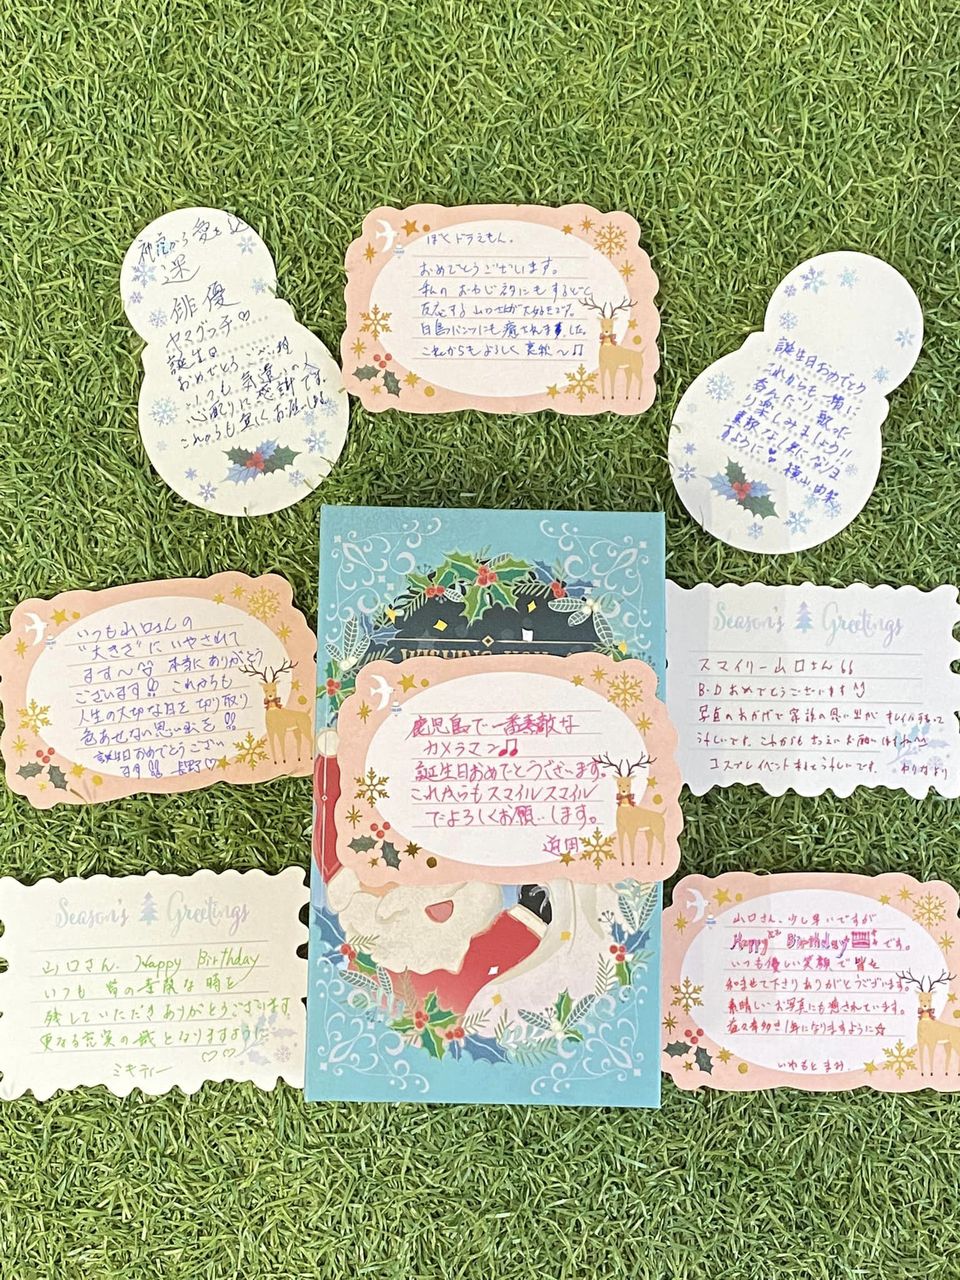 神
俳優
ヤマグっ子♡
誕生日
おめでとうございます
いつも気遣い
心配りに感謝です。
これからも宜しくお願いします
ぼくドラえもん。
おめでとうございます。
私の
反応する山口さんが大好きです。
白鳥パンツにも癒されました。
これからもよろしく哀愁〜♫
誕生日おめでとう
これからも一緒に
呑んだり歌った
り楽しみましょう!!
素敵な1年になりま
すように♥
いつも山口さんの
"大きさ"にいやされて
ます〜 本当にありがとう
ございます!! これからも
人生の大切な日を切り取り
色あせない思い出を!!
誕生日おめでとうござい
ます!! 長野♡
Season's Greetings
スマイリー山口さん
B・Dおめでとうございます
写真のおかげで家族の思い出が キレイに残って
うれしいです。これからも お願いします
コスプレイベントも うれしいです。 より
鹿児島で一番素敵な
カメラマン♫
誕生日おめでとうございます。
これからもスマイルスマイル
でよろしくお願いします。
Season's Greetings
山口さん、Happy Birthday
いつも 皆の素敵な時を
残していただきありがとうございます
更なる充実の歳となりますように
♡♡
ミキティー
山口さん、少し早いですが
Happy Birthday です。
いつも優しい笑顔で皆を
和ませて下さりありがとうございます。
素晴しいお写真にも癒されています。
益々幸多き1年になりますように☆
いわもと まみ